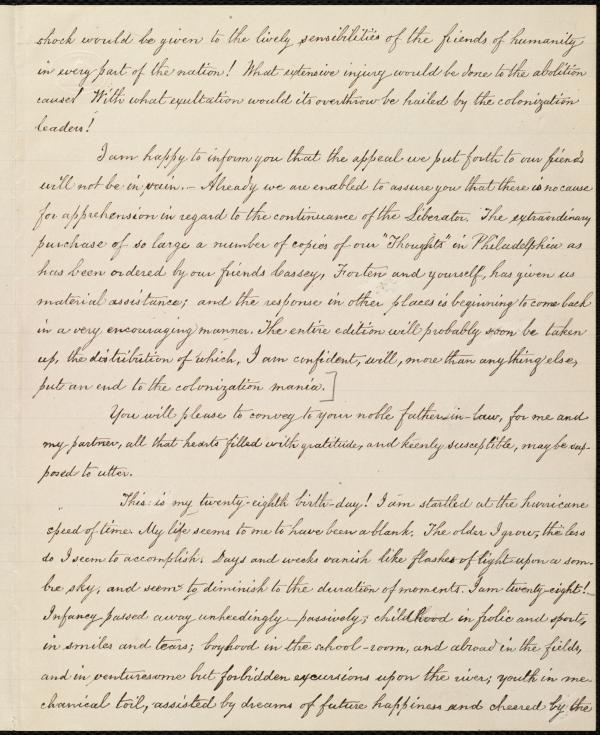 shock would be given to the lively sensibilities of the friends of humanity
in every part of the nation! What extensive injury would be done to the abolition
cause! With what exultation would its overthrow be hailed by the colonization
leaders!
I am happy to inform you that the appeal we put forth to our friends
will not be in vain. — Already we are enabled to assure you that there is no cause
for apprehension in regard to the continuance of the Liberator. The extraordinary
purchase of so large a number of copies of our "Thoughts" in Philadelphia as
has been ordered by our friends Cassey, Forten and yourself, has given us
material assistance; and the response in other places is beginning to come back
in a very encouraging manner. The entire edition will probably soon be taken
up, the distribution of which, I am confident, will, more than any thing else,
put an end to the colonization mania.]
You will please to convey to your noble father-in-law, for me and
my partner, all that hearts filled with gratitude, and keenly susceptible, may be sup-
posed to utter.
This is my twenty-eighth birth-day! I am startled at the hurricane
speed of time. My life seems to me to have been a blank. The older I grow, the less
do I seem to accomplish. Days and weeks vanish like flashes of light upon a som-
bre sky, and seem to diminish to the duration of moments. I am twenty-eight! —
Infancy passed away unheedingly — passively; childhood in frolic and sport,
in smiles and tears; boyhood in the school-room, and abroad in the fields,
and in venturesome but forbidden excursions upon the river; youth in me-
chanical toil, assisted by dreams of future happiness and cheered by the